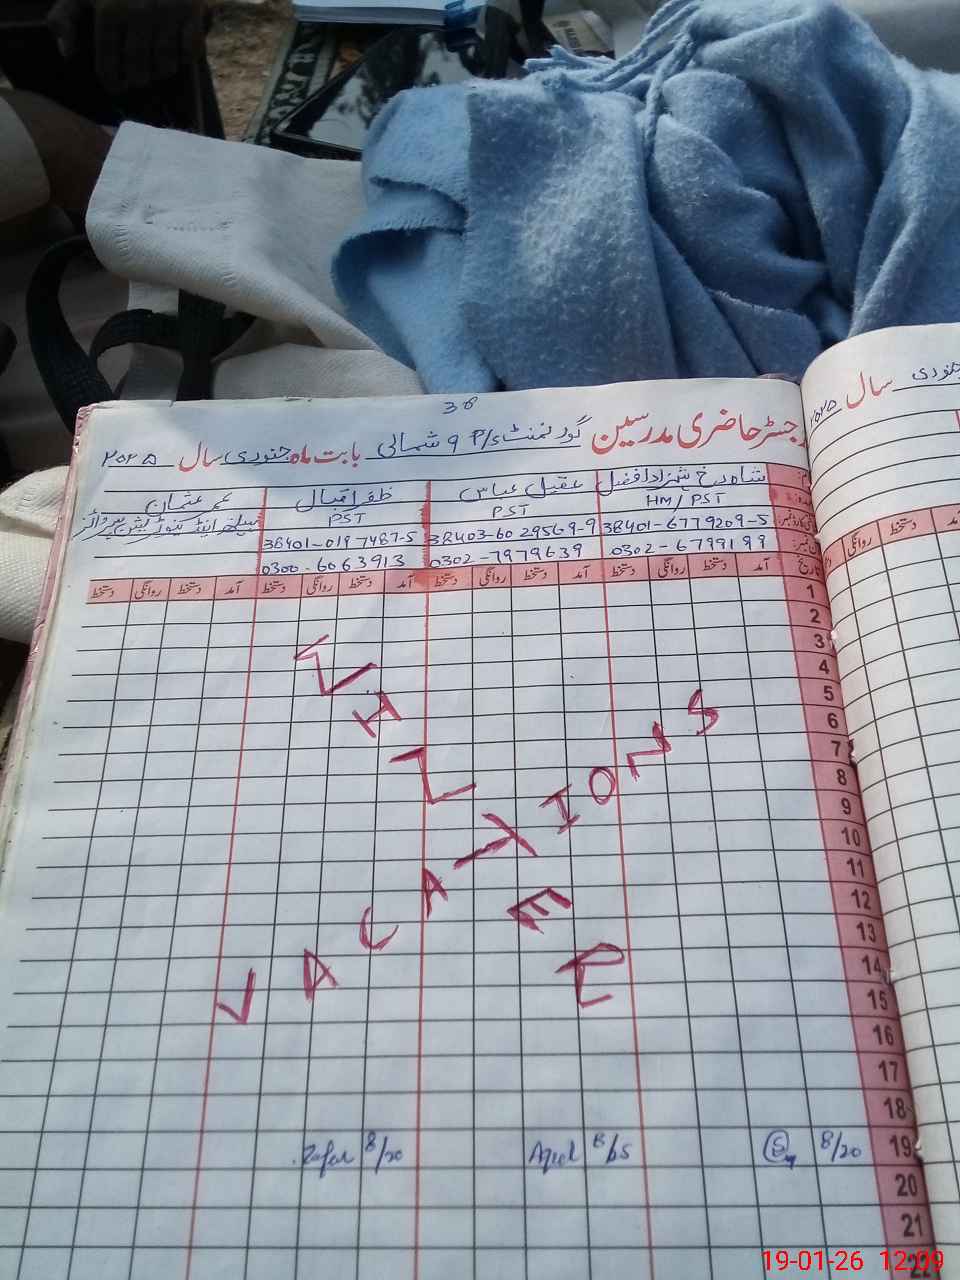 38
رجسٹر حاضری مدرسین گورنمنٹ P/S 9 شمالی بابت ماہ جنوری سال ۲۰۲۵
شاہ رخ شہزاد افضل عقیل عباس ظفر اقبال محمد عثمان
HM/PST PST PST
38401-6779209-5 38403-6029569-9 38401-0197487-5
0302-6799199 0302-7979639 0300-6063913
تاریخ آمد دستخط روانگی دستخط آمد دستخط روانگی دستخط آمد دستخط روانگی دستخط آمد دستخط روانگی دستخط
1
2
3
4
5
6
7
8
9
10
11
12
13
14
15
16
17
18
19 8/20 Aqeel 8/25 Zafar 8/20
20
21
22
VACATIONS
جنوری سال ۲۰۲۵
آمد دستخط روانگی
19-01-26 12:09